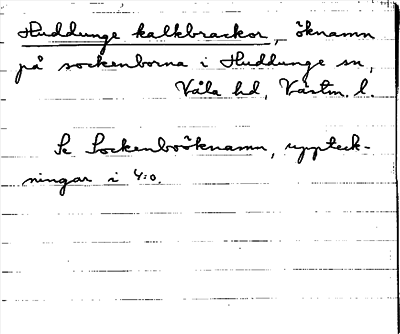 Huddunge kalkbrackor, öknamn
på sockenborna i Huddunge sn,
Våla hd, Västm. l.
Se Sockenboöknamn, uppteck-
ningar i 4:o.